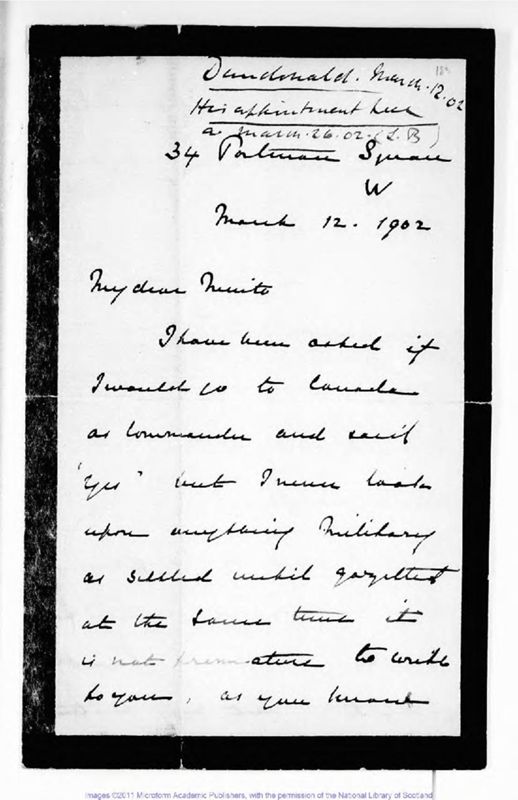 Dundonald. March. 12. 02
His appointment here
a. March. 26. 02. (L.B)
34 Portman Square
W
March 12. 1902
My dear Minto
I have been asked if
I would go to Canada
as Commander and said
"Yes" but I never look
upon anything Military
as settled until gazetted
at the same time it
is not premature to write
to you, as you know
Images ©2011 Microform Academic Publishers, with the permission of the National Library of Scotland